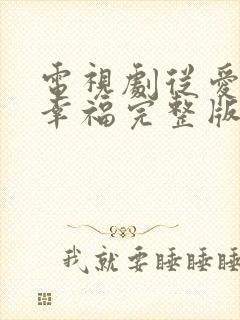 電視劇從愛
幸福完整版
我就要睡睡睡